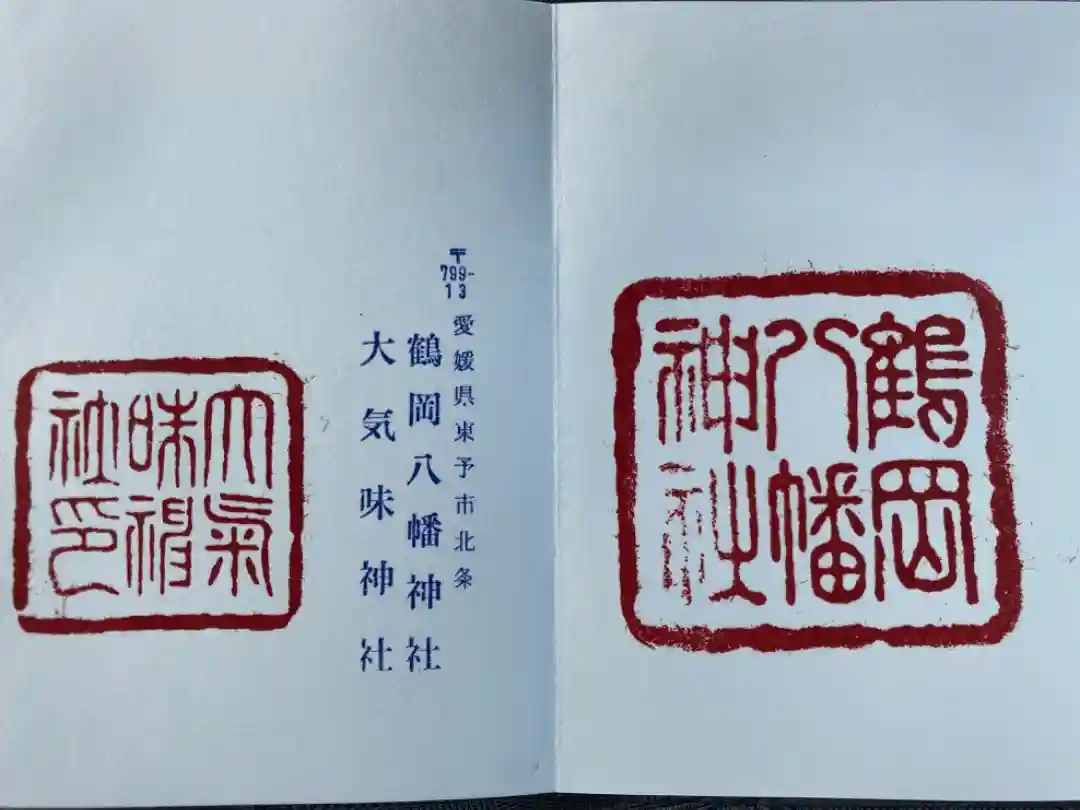 鶴岡
八幡
神社
〒
799-
13
愛媛県東予市北条
鶴岡八幡神社
大気味神社
大氣
味神
社印